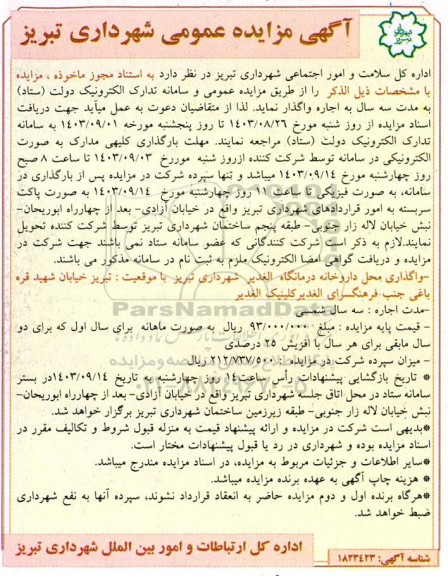 آگهی مزایده عمومی شهرداری تبریز
اداره کل سلامت و امور اجتماعی شهرداری تبریز در نظر دارد به استناد مجوز ماخوذه ، مزایده
با مشخصات ذیل الذکر را از طریق مزایده عمومی و سامانه تدارک الکترونیک دولت (ستاد)
به مدت سه سال به اجاره واگذار نماید. لذا از متقاضیان دعوت به عمل میآید جهت دریافت
اسناد مزایده از روز شنبه مورخ ۱۴۰۳/۰۸/۲۶ تا روز پنجشنبه مورخه ۱۴۰۳/۰۹/۰۱ به سامانه
تدارک الکترونیک دولت (ستاد) مراجعه نمایند. مهلت بارگذاری کلیهی مدارک به صورت
الکترونیکی در سامانه توسط شرکت کننده ازروز شنبه مورخ ۱۴۰۳/۰۹/۰۳ تا ساعت ۸ صبح
روز چهارشنبه مورخ ۱۴۰۳/۰۹/۱۴ میباشد و تنها سپرده شرکت در مزایده پس از بارگذاری در
سامانه، به صورت فیزیکی تا ساعت ۱۱ روز چهارشنبه مورخ ۱۴۰۳/۰۹/۱۴ به صورت پاکت
سربسته به امور قراردادهای شهرداری تبریز واقع در خیابان آزادی- بعد از چهارراه ابوریحان-
نبش خیابان لاله زار جنوبی- طبقه پنجم ساختمان شهرداری تبریز توسط شرکت کننده تحویل
نمایند.لازم به ذکر است شرکت کنندگانی که عضو سامانه ستاد نمی باشند جهت شرکت در
مزایده و دریافت گواهی امضا الکترونیک ملزم به ثبت نام در سامانه مذکور می باشند.
-واگذاری محل داروخانه درمانگاه الغدیر شهرداری تبریز با موقعیت : تبریز خیابان شهید قره
باغی جنب فرهنگسرای الغدیرکلینیک الغدیر
-مدت اجاره : سه سال شمسی
- قیمت پایه مزایده : مبلغ ۹۳/۰۰۰/۰۰۰ ریال به صورت ماهانه برای سال اول که برای دو
سال مابقی برای هر سال با افزایش ۲۵ درصدی
- میزان سپرده شرکت در مزایده : ۲۱۲/۷۳۷/۵۰۰ ریال
* تاریخ بازگشایی پیشنهادات رأس ساعت ۱۴ روز چهارشنبه تاریخ ۱۴۰۳/۰۹/۱۴ در بستر
سامانه ستاد در محل اتاق جلسه شهرداری تبریز واقع در خیابان آزادی- بعد از چهارراه ابوریحان-
نبش خیابان لاله زار جنوبی- طبقه زیرزمین ساختمان شهرداری تبریز برگزار خواهد شد.
*بدیهی است شرکت در مزایده و ارائه پیشنهاد قیمت به منزله قبول شروط و تکالیف مقرر در
اسناد مزایده بوده و شهرداری در رد یا قبول پیشنهادات مختار است.
*سایر اطلاعات و جزئیات مربوط به مزایده، در اسناد مزایده مندرج میباشد.
* هزینه چاپ آگهی به عهده برنده مزایده میباشد.
*هرگاه برنده اول و دوم مزایده حاضر به انعقاد قرارداد نشوند، سپرده آنها به نفع شهرداری
ضبط خواهد شد.
اداره کل ارتباطات و امور بین الملل شهرداری تبریز
شناسه آگهی: ۱۸۲۳۴۲۳
ParsNamadData